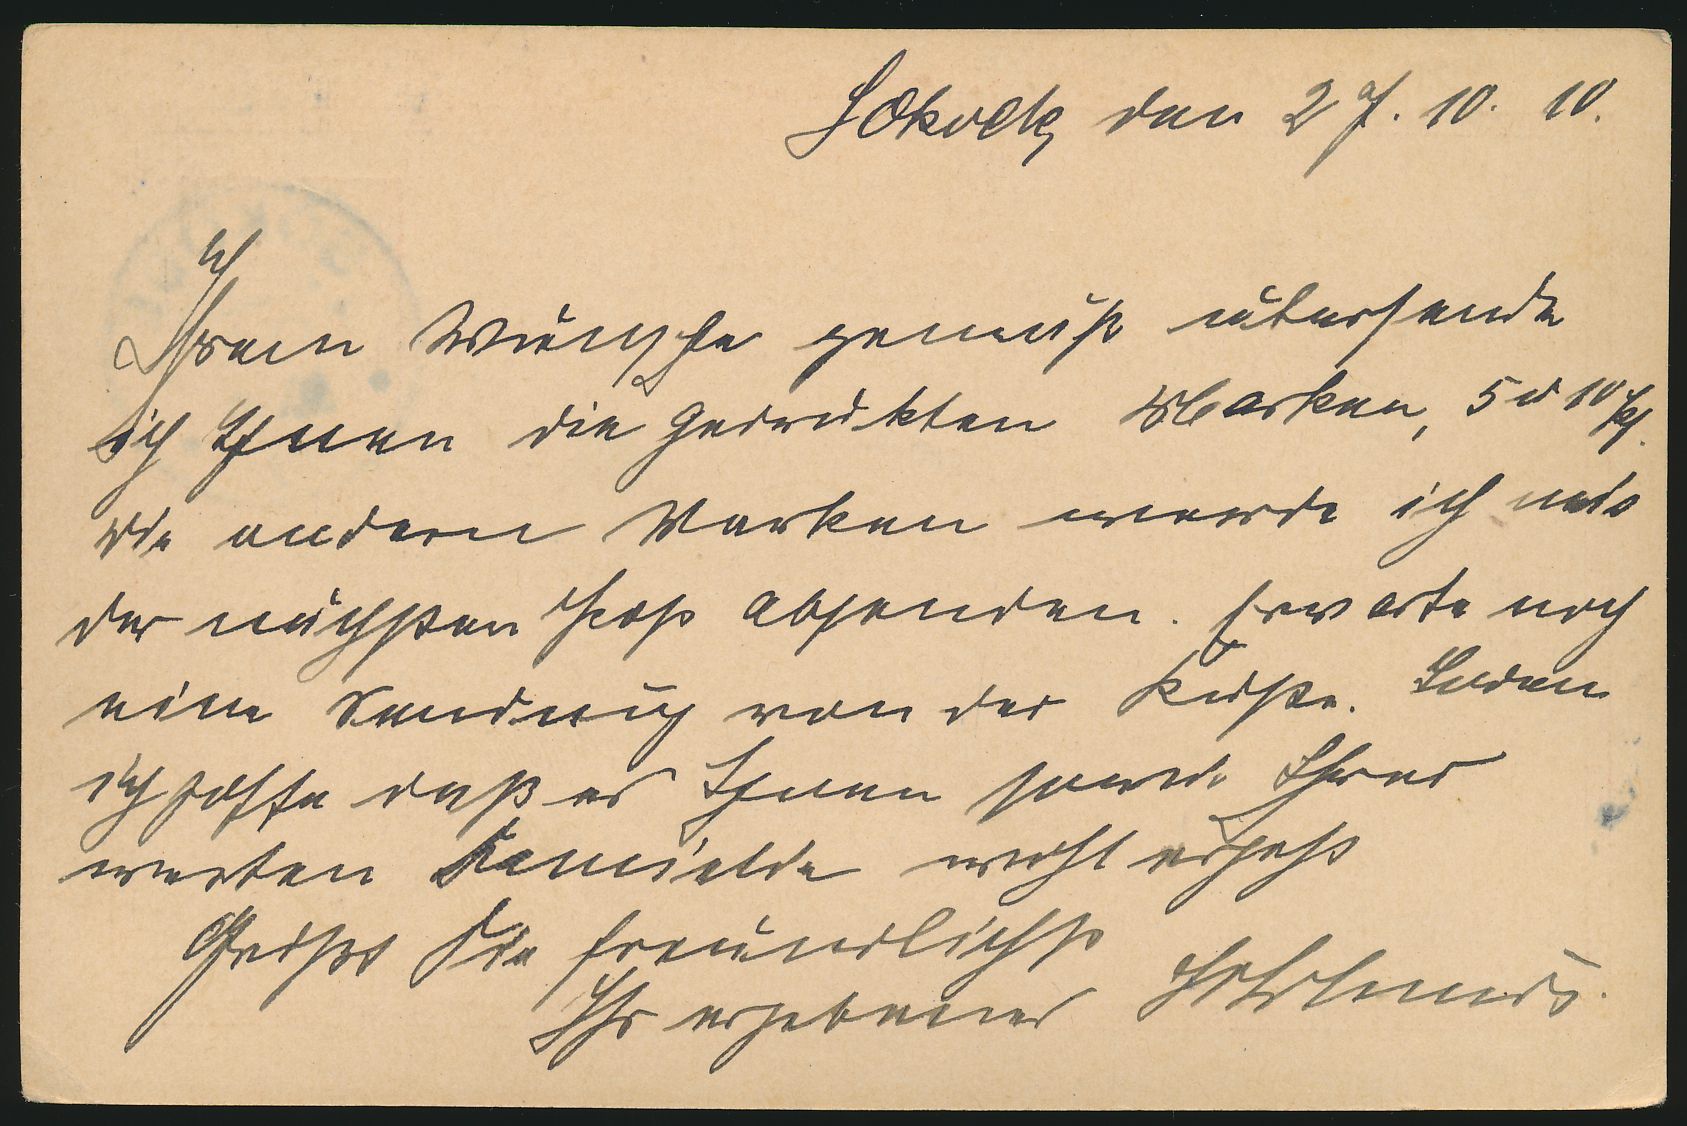 Sokode, den 27. 10. 10.
Ihrem Wunsche gemäß übersende
ich Ihnen die gedrukten Marken, 5 u 10 Pf.
die andern Marken werde ich mit
der nächsten Post absenden. Erwarte noch
eine Sendung von der Küste.
ich hoffe daß es Ihnen sowie Ihrer
werten Familie wohl ergeht
Grüßt Sie freundlichst
Ihr ergebener